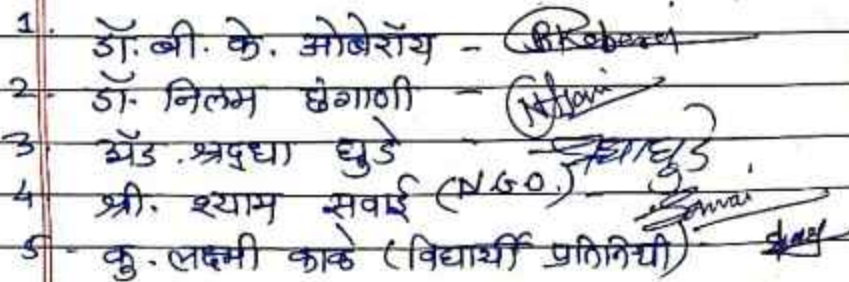 1. डॉ. बी. के. ओबेरॉय -
2. डॉ. निलम छंगाणी -
3. अॅड. श्रद्धा घुडे - श्रद्धा घुडे
4 श्री. श्याम सवाई (N.G.O.) -
5 - कु. लक्ष्मी काळे (विद्यार्थी प्रतिनिधी)